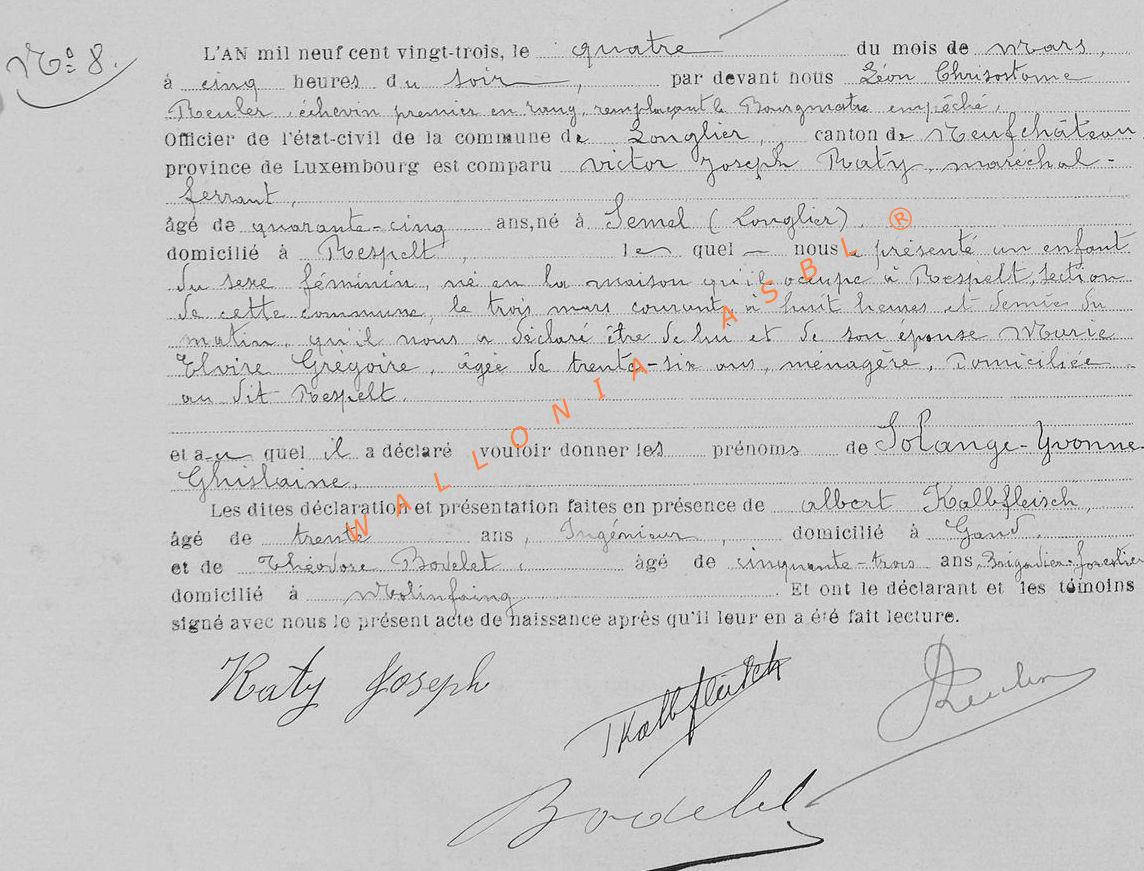 No 8.
L'AN mil neuf cent vingt-trois, le quatre du mois de Mars,
à cinq heures du soir, par devant nous Léon Chrisostome
Reuler, échevin premier en rang, remplaçant le Bourgmatre empêché,
Officier de l'état-civil de la commune de Longlier, canton de Neufchâteau
province de Luxembourg est comparu Victor Joseph Raty, maréchal-
ferrant,
âgé de quarante-cinq ans, né à Semel (Longlier).
domicilié à Respelt, le quel nous a présenté un enfant
du sexe féminin, né en la maison qu'il occupe à Respelt, section
de cette commune, le trois mars courant, à huit heures et demie du
matin, qu'il nous a déclaré être de lui et de son épouse Marie
Elvire Grégoire, âgée de trente-six ans, ménagère, Domiciliée
au dit Respelt.
et au quel il a déclaré vouloir donner les prénoms de Solange-Yvonne
Ghislaine.
Les dites déclaration et présentation faites en présence de Albert Kalbfleisch,
âgé de trente ans, Ingénieur, domicilié à Gand.
et de Théodore Bodelet, âgé de cinquante-trois ans, Brigadier-forestier
domicilié à Molinfaing. Et ont le déclarant et les témoins
signé avec nous le présent acte de naissance après qu'il leur en a été fait lecture.
Raty Joseph
Kalbfleisch
Reuler
Bodelet
WALLONIA ASBL ®